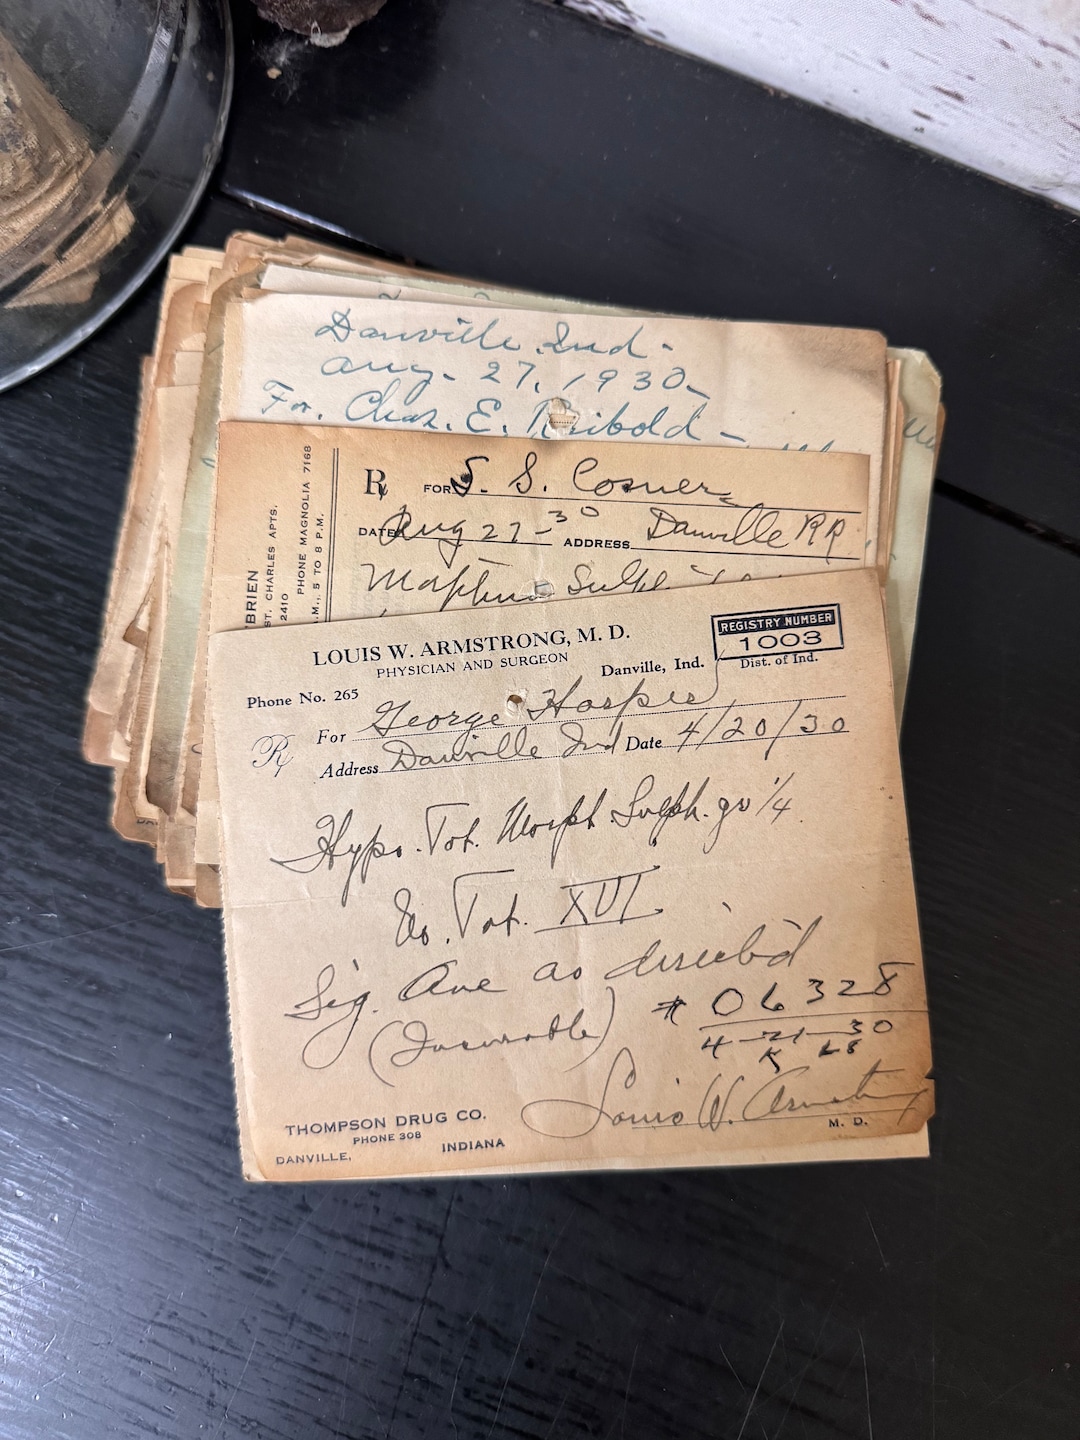 Danville Ind -
Aug - 27, 1930 -
For. Chas. E. Reibold -
BRIEN
ST. CHARLES APTS.
2410
PHONE MAGNOLIA 7168
.M., 5 TO 8 P.M.
Rx FOR S. S. Cosner
DATE Aug 27-30 ADDRESS Danville RR
Morphine Sulph
LOUIS W. ARMSTRONG, M. D.
PHYSICIAN AND SURGEON
REGISTRY NUMBER
1003
Dist. of Ind.
Danville, Ind.
Phone No. 265
Rx
For George Harper
Address Danville Ind Date 4/20/30
Hypo. Tab. Morph. Sulph. gr 1/4
No. Tab. XVI
Sig. One as directed
(Incurable)
# 06328
4-21-30
THOMPSON DRUG CO.
PHONE 308
DANVILLE, INDIANA
Louis W. Armstrong
M. D.